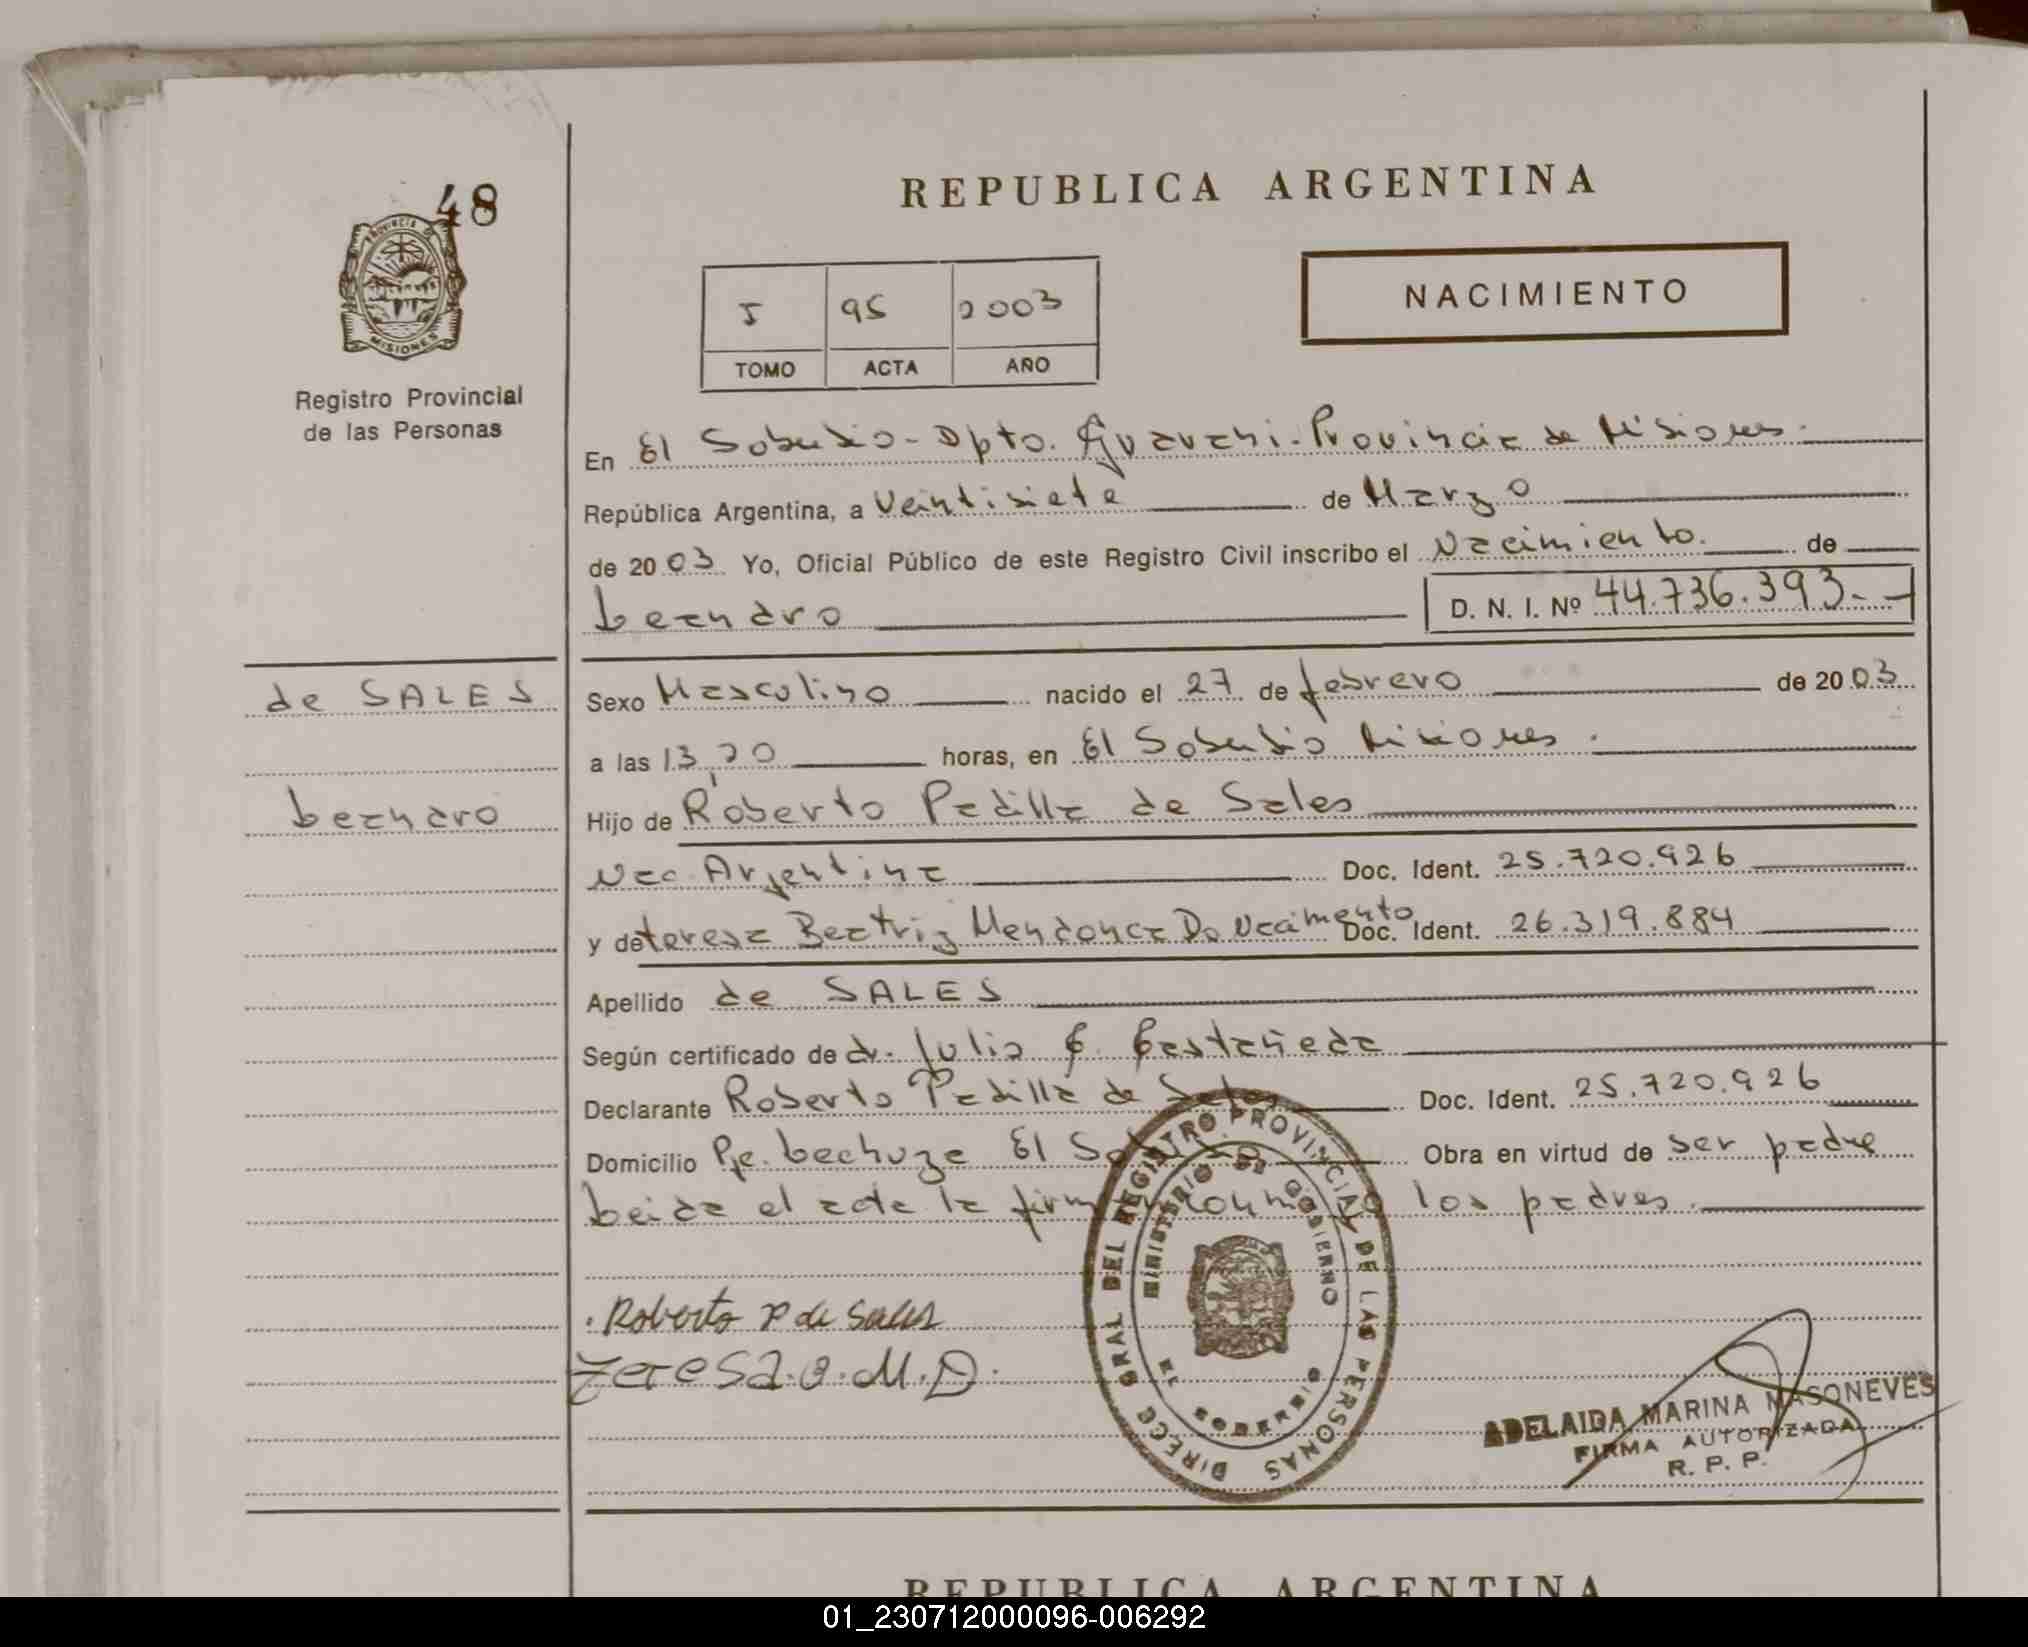 48
PROVINCIA DE
MISIONES
Registro Provincial
de las Personas
REPUBLICA ARGENTINA
I 95 2003
TOMO ACTA AÑO
NACIMIENTO
En El Soberbio - Dpto. Guarani - Provincia de Misiones.
República Argentina, a Veintisiete de Marzo
de 2003 Yo, Oficial Público de este Registro Civil inscribo el Nacimiento. de
Leandro D. N. I. Nº 44.736.393.-
de SALES
Leandro
Sexo Masculino nacido el 27 de febrero de 2003
a las 13,20 horas, en El Soberbio Misiones.
Hijo de Roberto Padilla de Sales
Nac. Argentina Doc. Ident. 25.720.926
y de teresa Beatriz Mendonca Do Nacimento Doc. Ident. 26.319.884
Apellido de SALES
Según certificado de dr. Julio C. Castañeda
Declarante Roberto Padilla de Sales Doc. Ident. 25.720.926
Domicilio Pje. Lechuza El Soberbio Obra en virtud de ser padre
Leida el acta la firman conmigo los padres.
Roberto P de Sales
Teresa.B.M.D.
DIRECC GRAL DEL REGISTRO PROVINCIAL DE LAS PERSONAS
MINISTERIO DE GOBIERNO
EL SOBERBIO
ADELAIDA MARINA MASONEVES
FIRMA AUTORIZADA
R. P. P.
REPUBLICA ARGENTINA
01_230712000096-006292